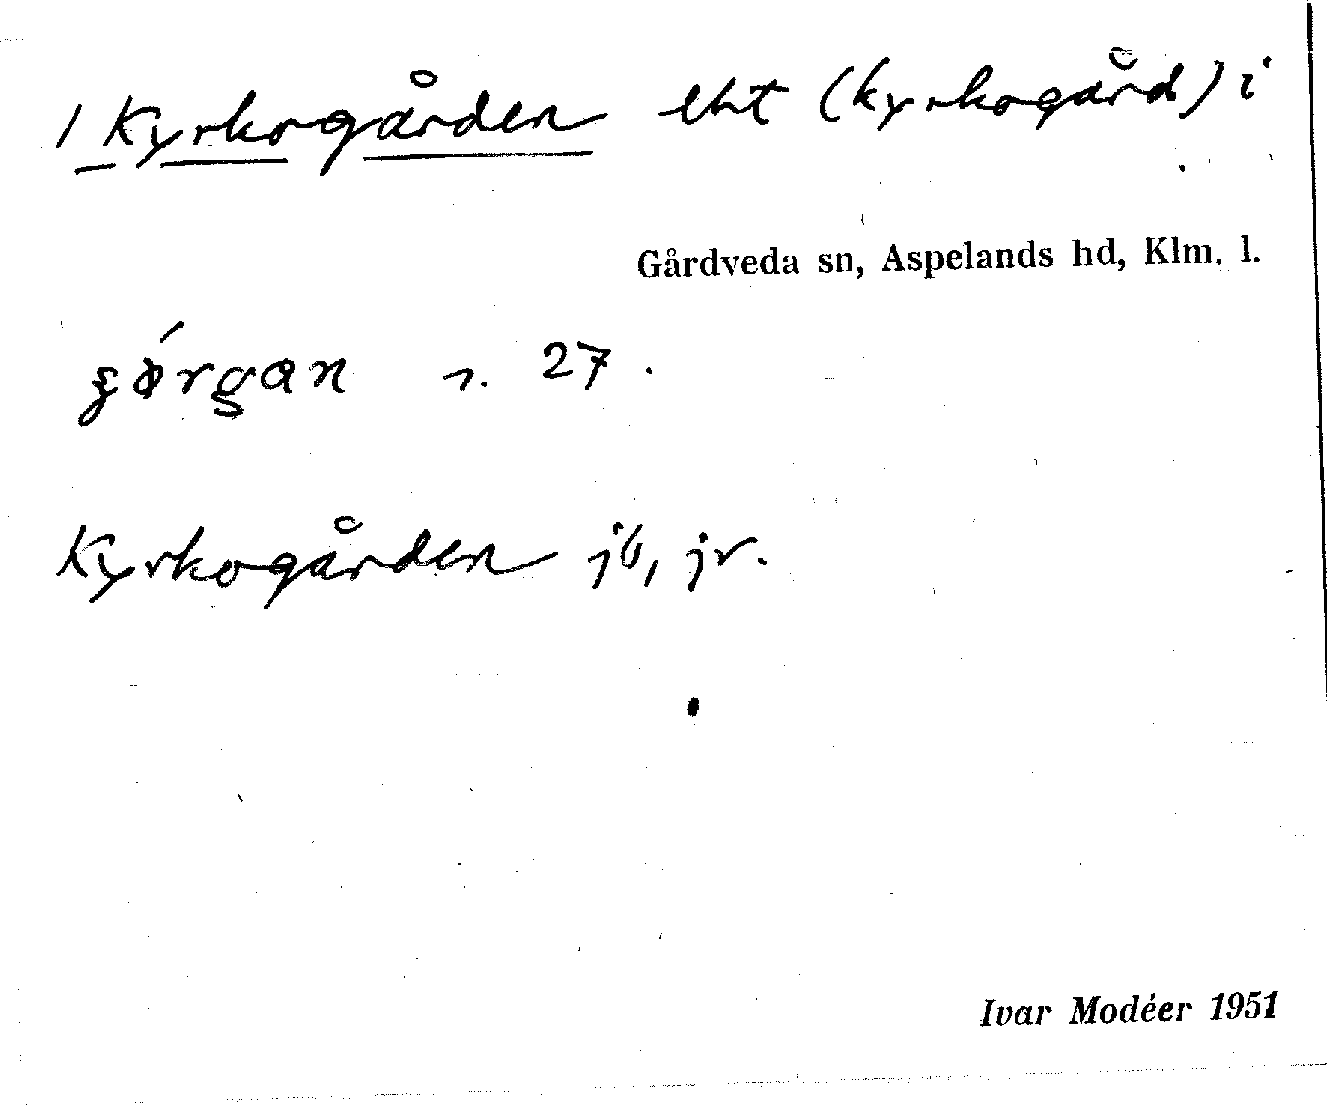 1 Kyrkogården lht (kyrkogård) i
Gårdveda sn, Aspelands hd, Klm. l.
r. 27.
Kyrkogården jb, jr.
Ivar Modéer 1951